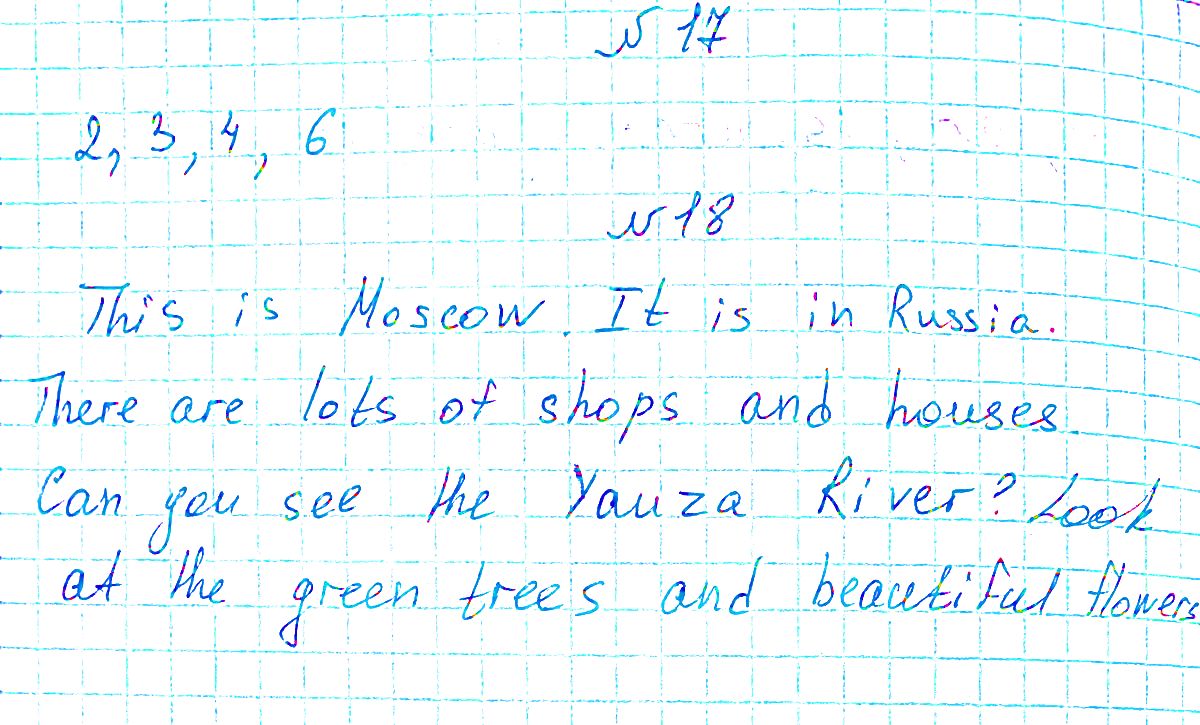 № 17
2, 3, 4, 6
№ 18
This is Moscow. It is in Russia.
There are lots of shops and houses
Can you see the Yauza River? Look
at the green trees and beautiful flowers